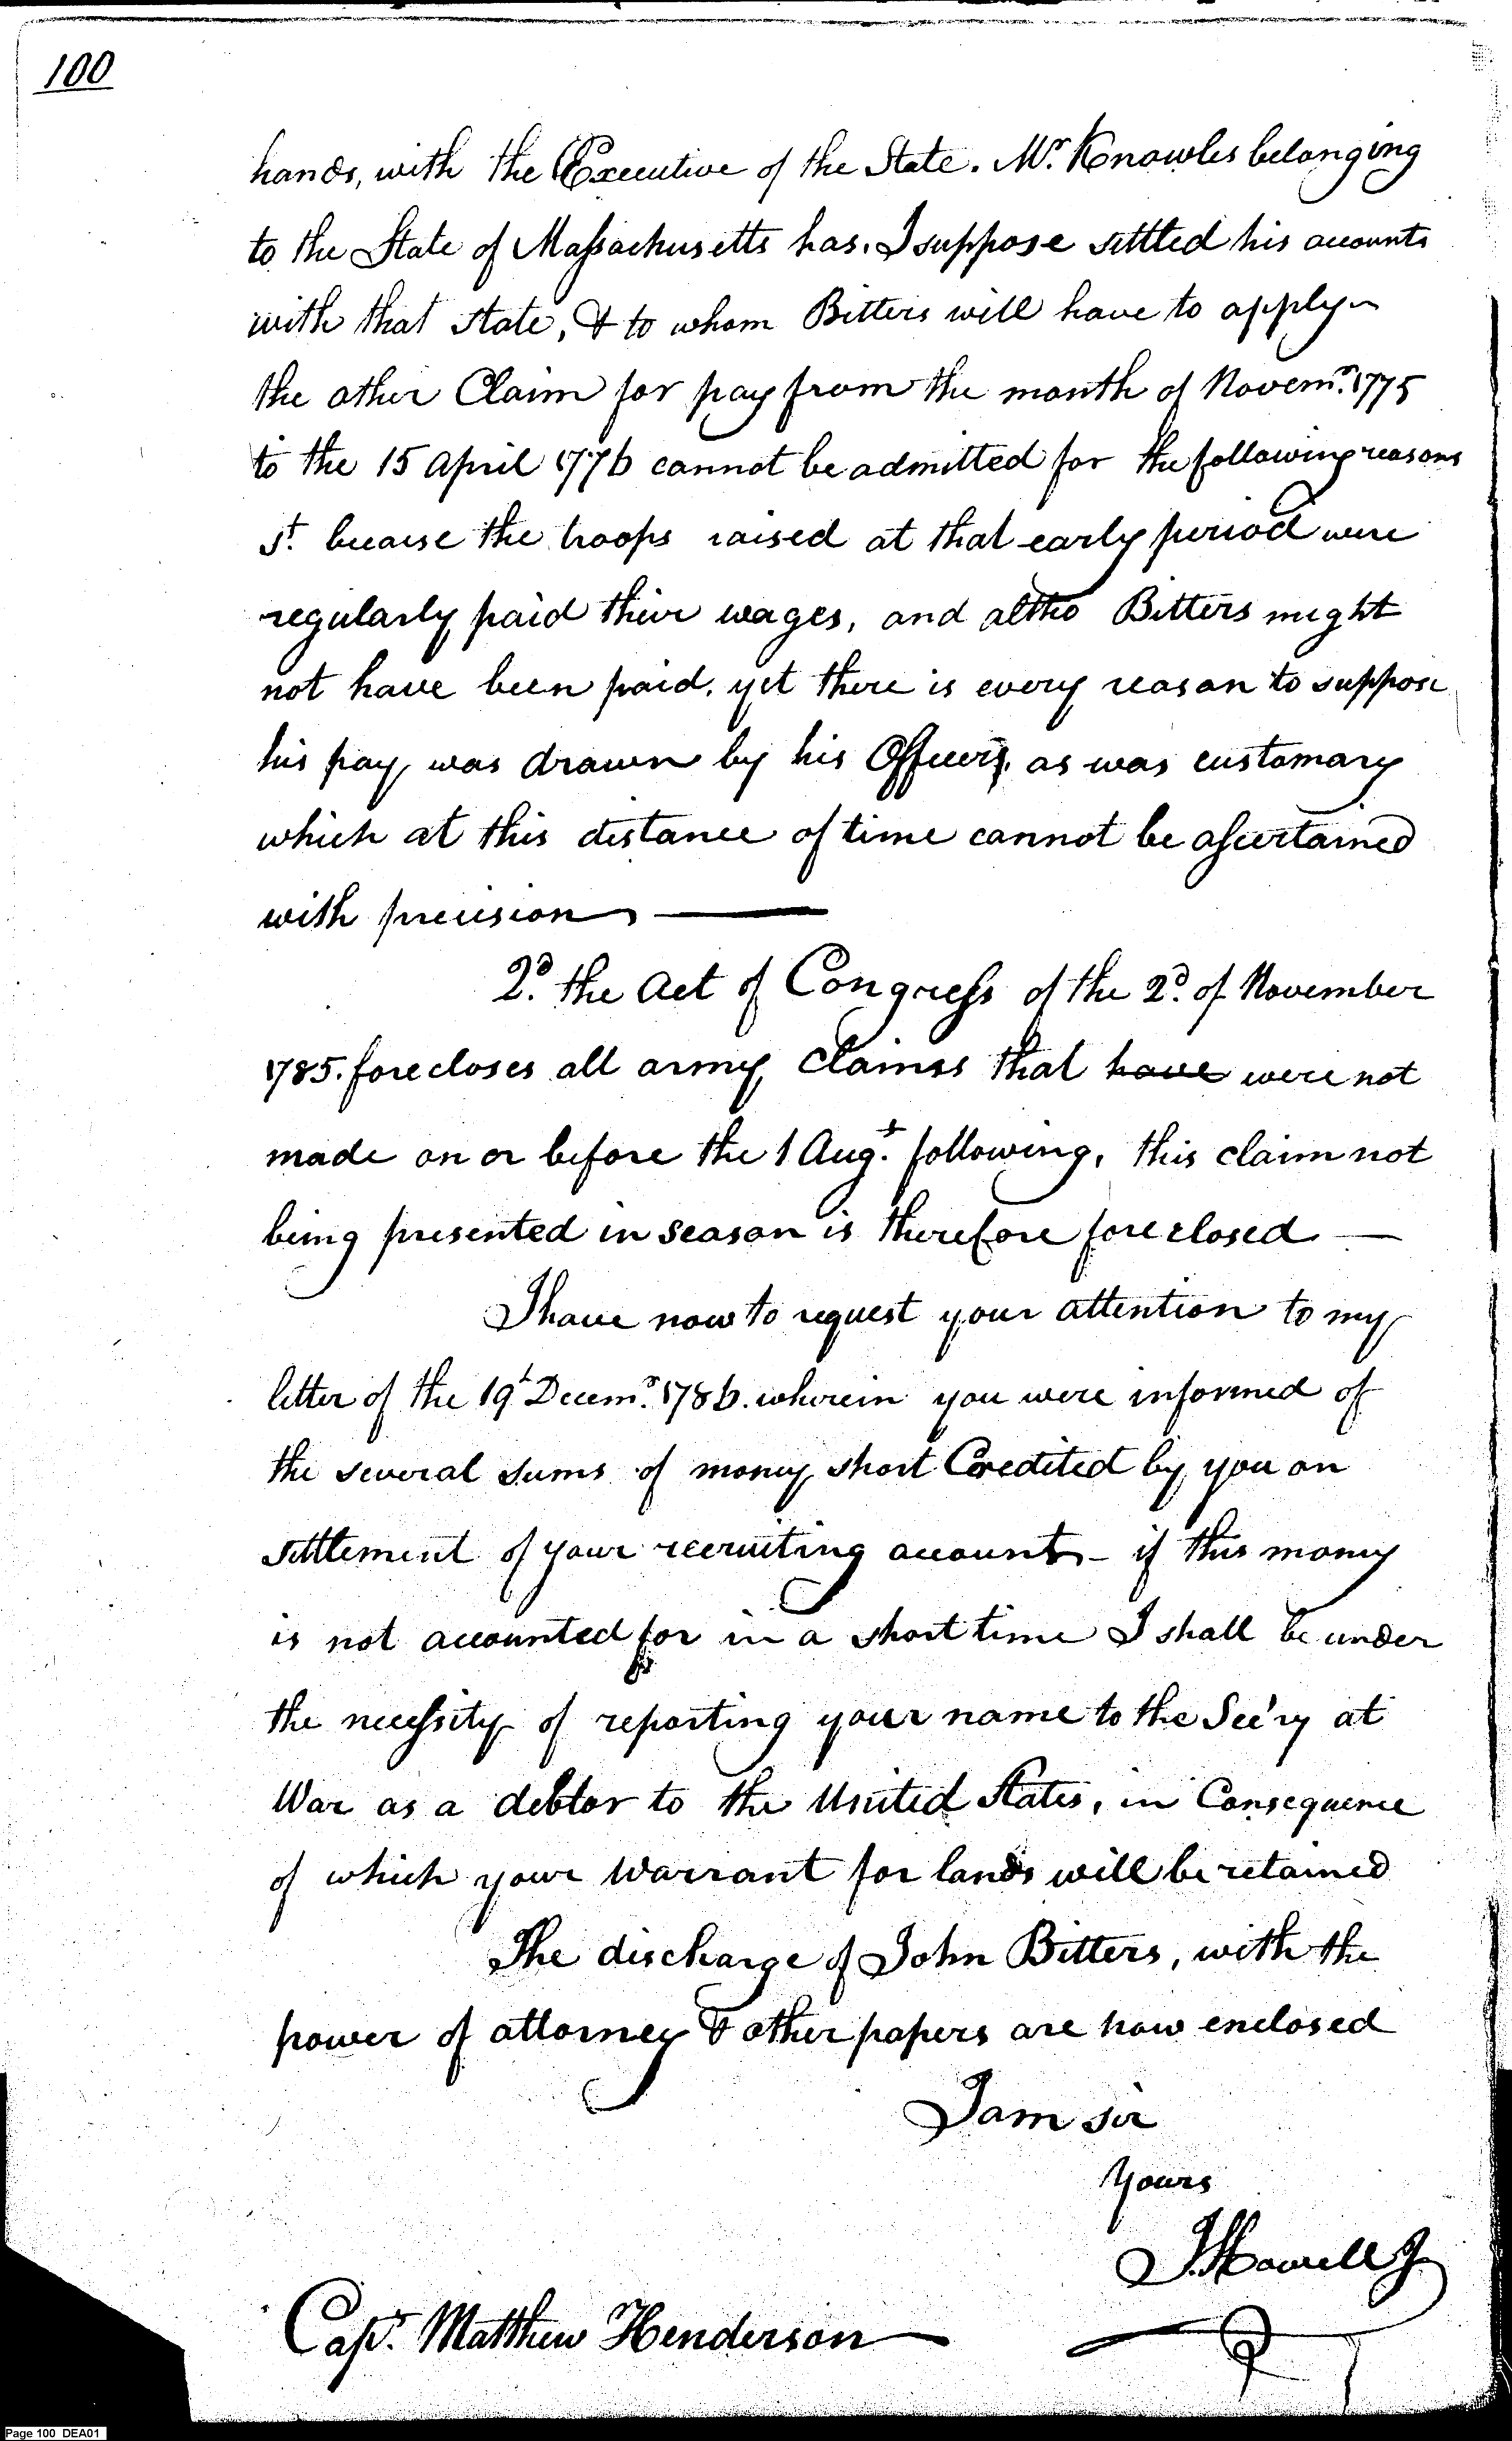 100
hands, with the Executive of the State. Mr. Knowles belonging
to the State of Massachusetts has. I suppose settled his accounts
with that state, & to whom Bitters will have to apply
the other Claim for pay from the month of Novemr. 1775
to the 15 April 1776 cannot be admitted for the following reasons
st. because the troops raised at that early period were
regularly paid their wages, and altho Bitters might
not have been paid. yet there is every reason to suppose
his pay was drawn by his Officers, as was customary
which at this distance of time cannot be ascertained
with precision ——
2d. the Act of Congress of the 2d. of November
1785. forecloses all army claimss that have were not
made on or before the 1 Augt. following, this claim not
being presented in season is therefore foreclosed —
I have now to request your attention to my
letter of the 19t Decemr. 1786. wherein you were informed of
the several sums of money short Credited by you on
settlement of your recruiting accounts - if this money
is not accounted for in a short time I shall be under
the necessity of reporting your name to the Sec'ry at
War as a debtor to the United States, in Consequence
of which your Warrant for lands will be retained
The discharge of John Bitters, with the
power of attorney & other papers are now enclosed
I am sir
Yours
J. Howell Jr
Capt. Matthew Henderson —
Page 100 DEA01